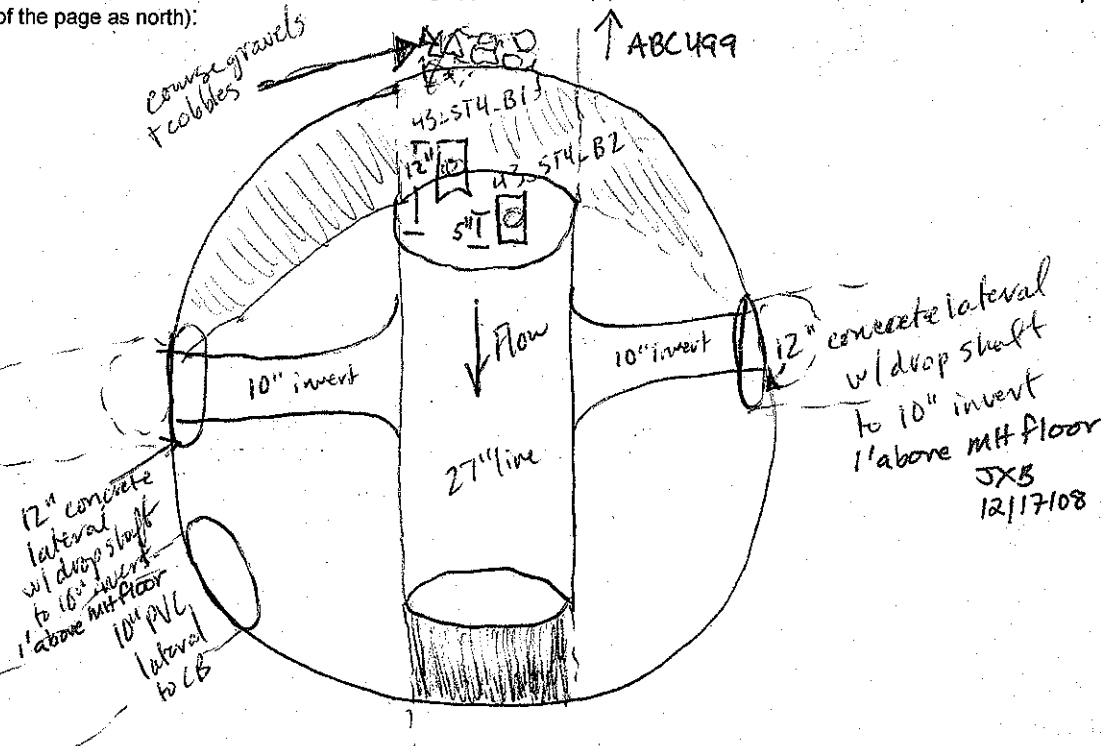 of the page as north):
↑ ABC499
course gravels
+ cobbles
43_ST4_B1
12"
43_ST4_B2
5"
Flow
10" invert
10" invert
27" line
12" concrete lateral
w/ drop shaft
to 10" invert
1' above MH floor
JXB
12/17/08
12" concrete
lateral
w/ drop shaft
to 10" invert
1' above MH floor
10" PVC
lateral
to CB